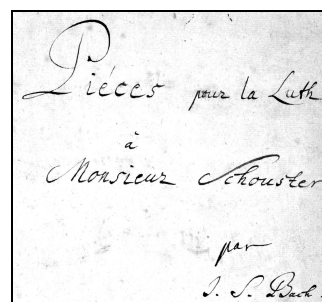 Piéces pour la Luth
à
Monsieur Schouster
par
J. S. Bach.